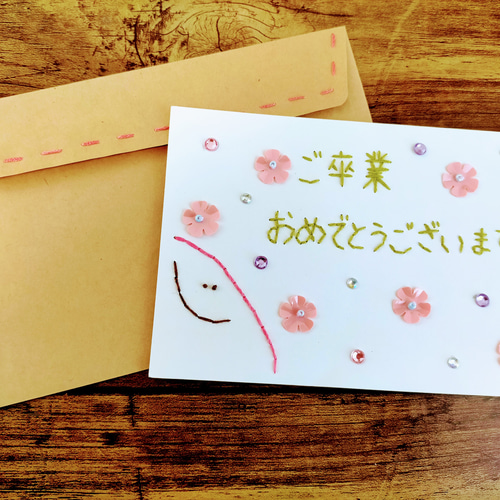 ご卒業
おめでとうございます